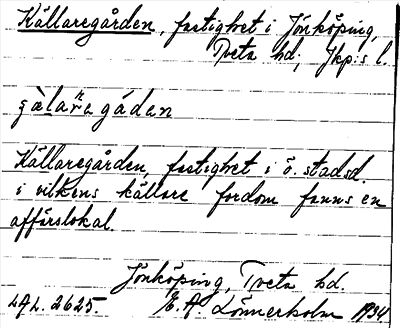 Källaregården, fastighet i Jönköping,
Tveta hd, Jkp:s l.
Källaregården, fastighet i ö. stadsd.
i vilkens källare fordom fanns en
affärslokal.
Jönköping, Tveta hd.
LAL. 2625. E. A. Lönnerholm 1934